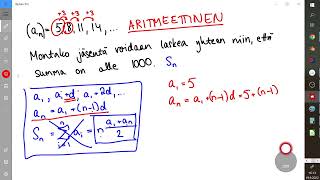 +3 +3 +3
(an) = 5, 8, 11, 14, ... ARITMEETTINEN
Montako jäsentä voidaan laskea yhteen niin, että
summa on alle 1000. Sn
a1, a1+d, a1+2d, ...
an = a1 + (n-1)d
Sn = Σ ai = n (a1 + an)/2
a1 = 5
an = a1 + (n-1)d = 5 + (n-1)